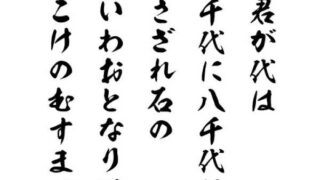 君が代は
千代に八千代
さざれ石の
いわおとなり
こけのむすま